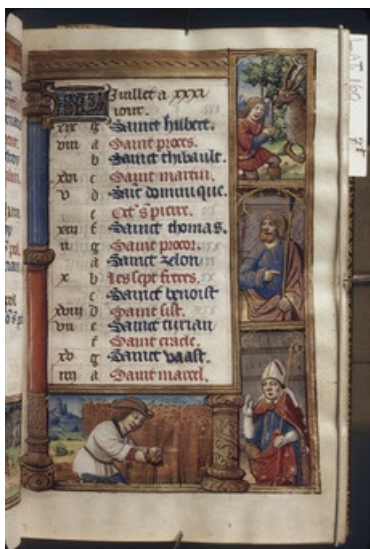 Juillet a xxxi
iour.
xix g Sainct hubert.
viii a Sainct proces.
b Sainct thibault.
xvi c Sainct martin.
v d Sait dominique.
e Oct s pierre.
xiii f Sainct thomas.
ii g Sainct procor.
a Sainct zelon
x b Les sept freres.
c Sainct benoist
xviii d Sainct sixt.
vii e Sainct turian
f Sainct cracle.
xv g Sainct vaast.
iiii a Sainct marcel.
LAT. 160